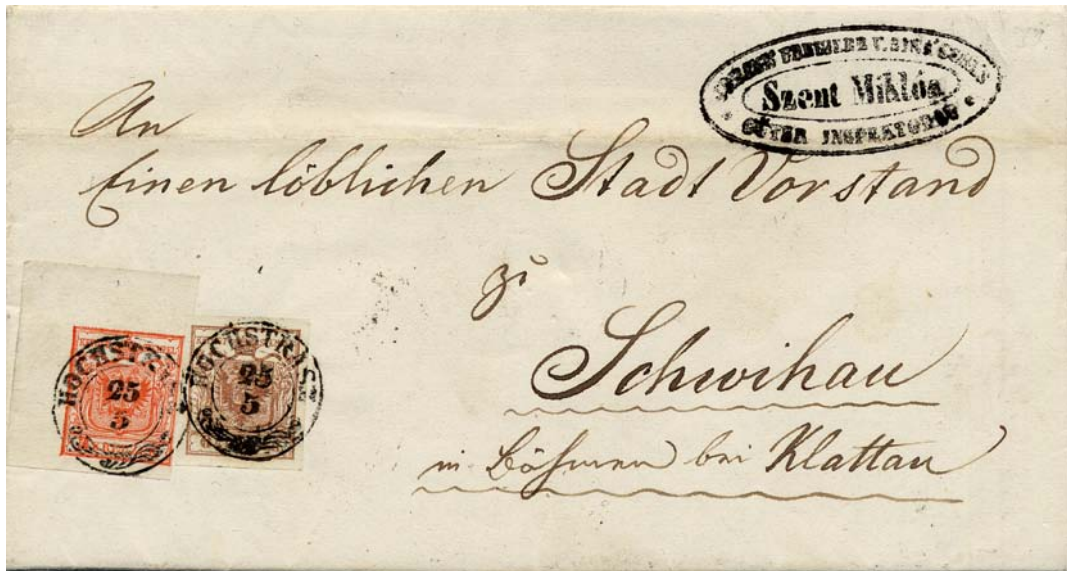 Szent Miklós
GÜTER INSPEKTORAT
An
Einen löblichen Stadt Vorstand
zu
Schwihau
in Böhmen bei Klattau
HOCHSTRASS
25
3
HOCHSTRASS
25
3